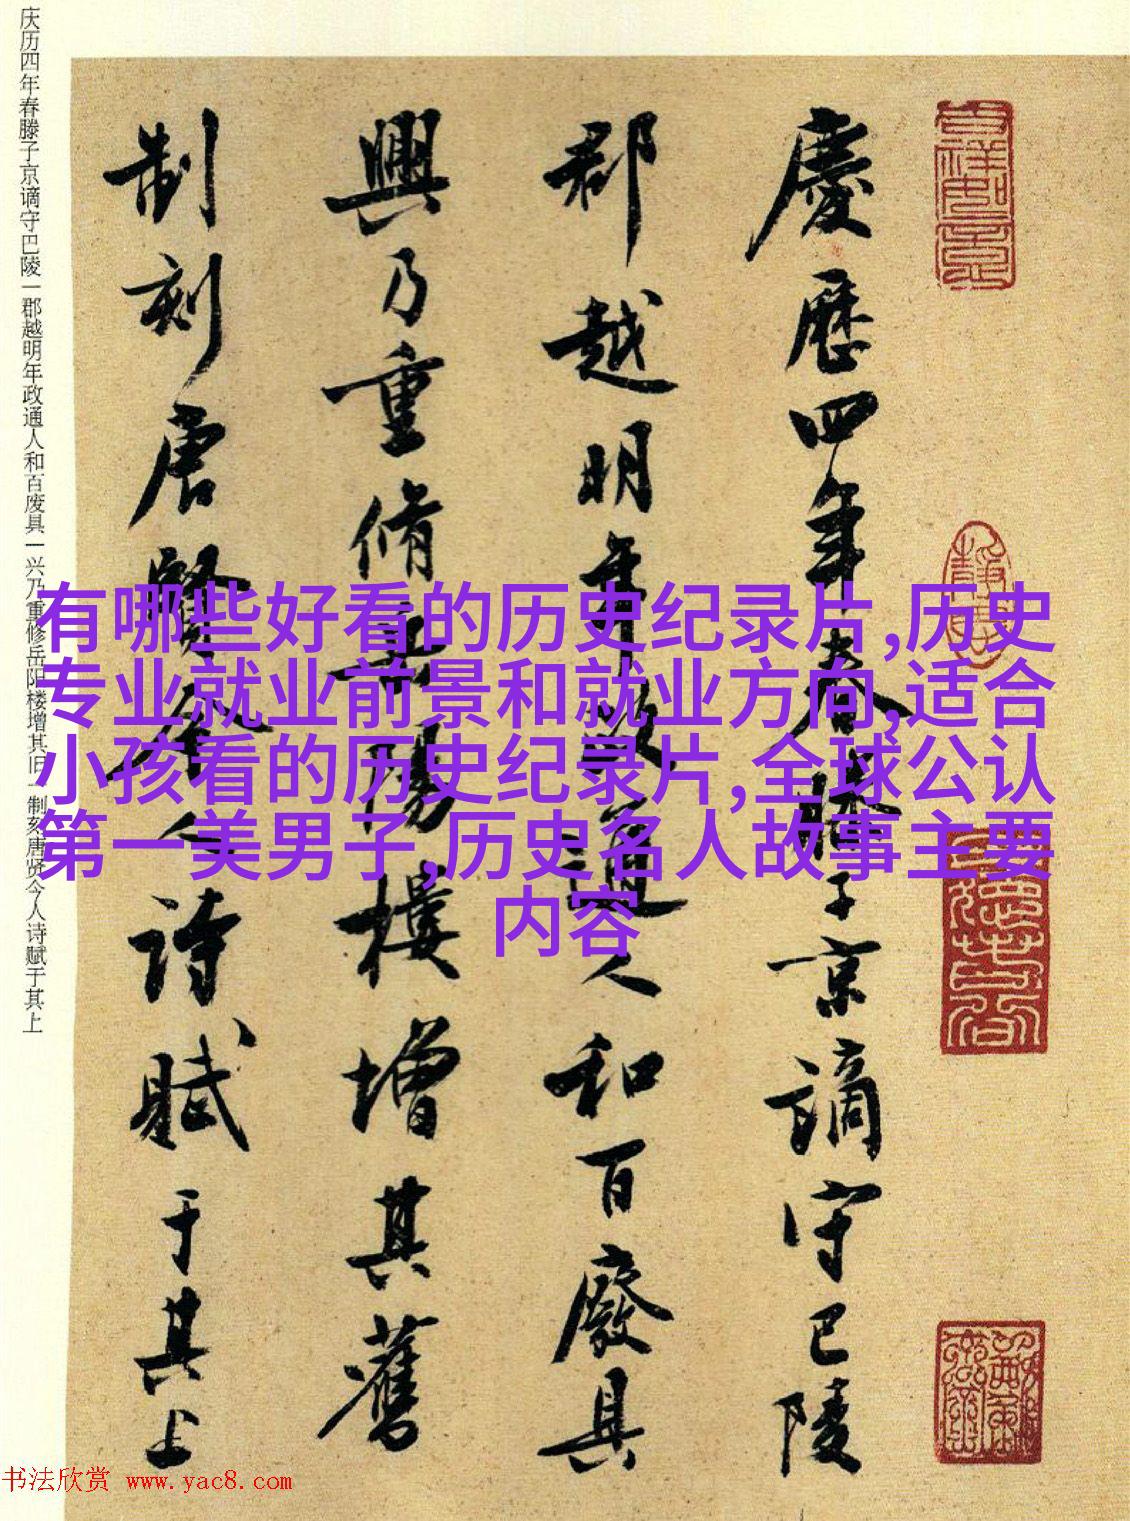 慶歷四年春滕子京謫守巴陵
郡越明年政通人和百廢具
興乃重脩岳陽樓增其舊
制刻唐賢今人詩賦于其上
庆历四年春滕子京谪守巴陵一郡越明年政通人和百废具一兴乃重修岳阳楼增其旧一制刻唐贤今人诗赋于其上
有哪些好看的历史纪录片,历史
专业就业前景和就业方向,适合
小孩看的历史纪录片,全球公认
第一美男子,历史名人故事主要
内容
书法欣赏 www.yac8.com